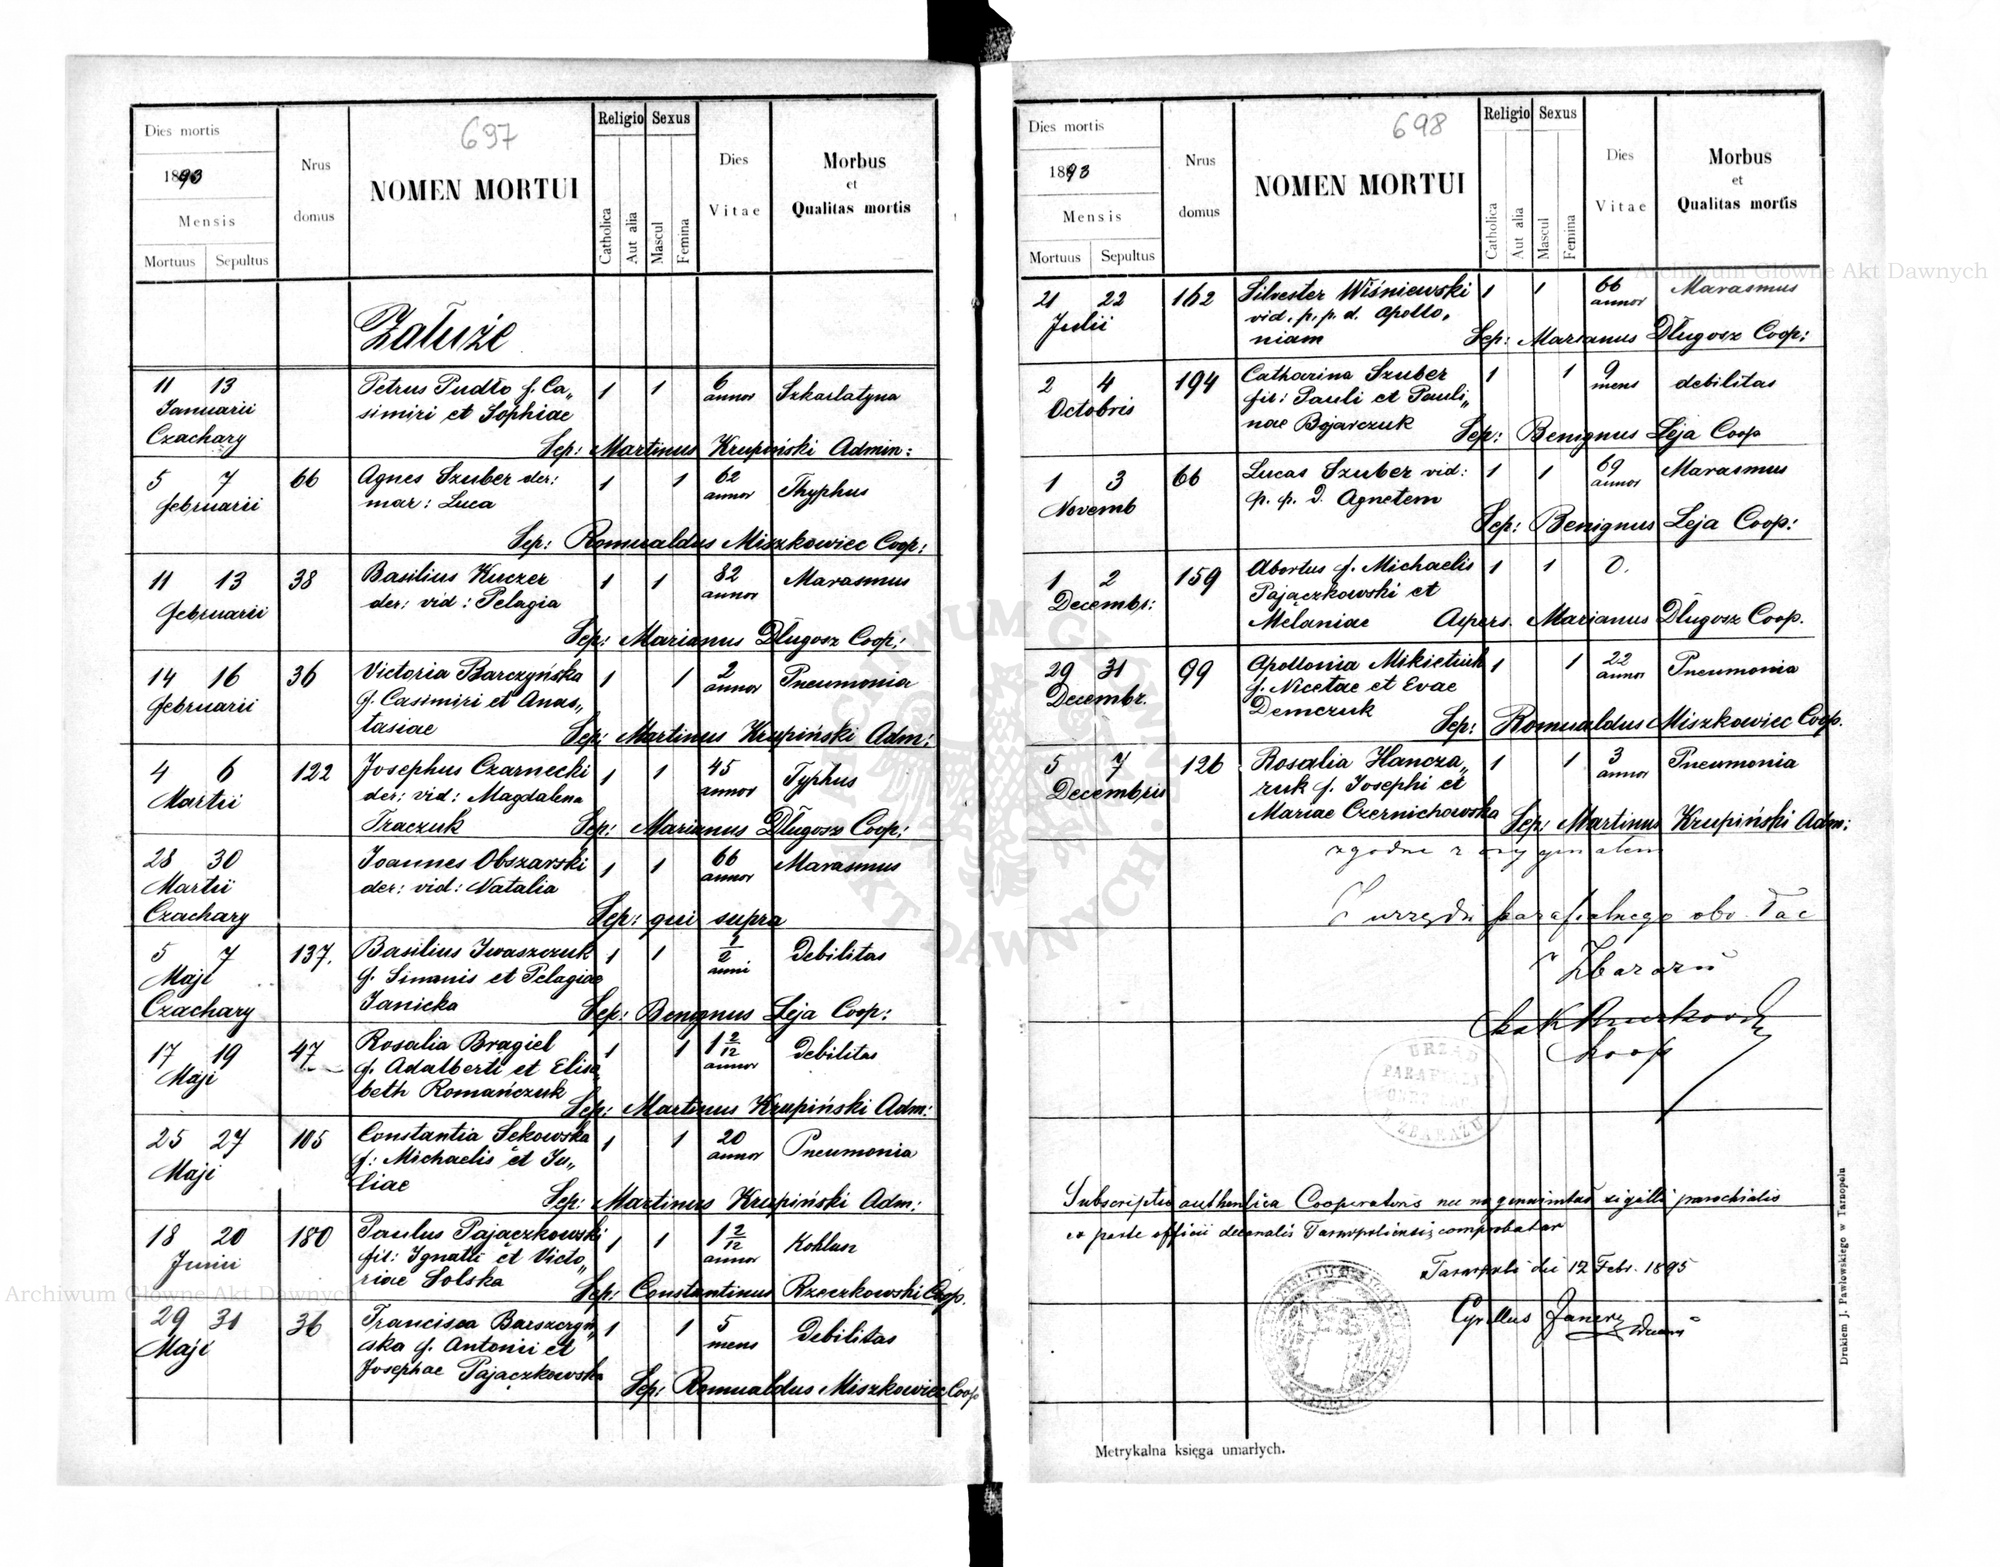 697
Dies mortis
1893
Mensis
Mortuus Sepultus
Nrus
domus
NOMEN MORTUI
Religio Sexus
Catholica
Aut alia
Mascul
Femina
Dies
Vitae
Morbus
et
Qualitas mortis
Załuże
11 13 Petrus Pudło f. Ca„ 1 1 6 Szkarlatyna
Januarii simiri et Sophiae annor
Czachary Sep: Martinus Krupiński Admin:
5 7 66 Agnes Szuber der: 1 1 62 Thyphus
februarii mar: Luca annor
Sep: Romualdus Miszkowiec Coop:
11 13 38 Basilius Kuczer 1 1 82 Marasmus
februarii der: vid: Pelagia annor
Sep: Marianus Długosz Coop:
14 16 36 Victoria Barczyńska 1 1 2 Pneumonia
februarii f. Casimiri et Anas„ annor
tasiae Sep: Martinus Krupiński Adm:
4 6 122 Josephus Czarnecki 1 1 45 Typhus
Martii der: vid: Magdalena annor
Traczuk Sep: Marianus Długosz Coop:
28 30 Joannes Obszarski 1 1 66 Marasmus
Martii der: vid: Natalia annor
Czachary Sep: qui supra
5 7 137. Basilius Iwaszczuk 1 1 1/2 Debilitas
Maji f. Simanis et Pelagiae anni
Czachary Janicka Sep: Benignus Leja Coop:
17 19 47 Rosalia Bragiel 1 1 1 2/12 Debilitas
Maji f. Adalberti et Elisa„ annor
beth Romańczuk Sep: Martinus Krupiński Adm:
25 27 105 Constantia Sekowska 1 1 20 Pneumonia
Maji f: Michaelis et Ju„ annor
liae Sep: Martinus Krupiński Adm:
18 20 180 Paulus Pajączkowski 1 1 1 2/12 Kohlusz
Junii fil: Ignatii et Victo„ annor
riae Solska Sep: Constantinus Rzeczkowski Coop.
29 31 36 Francisca Barszczyń„ 1 1 5 Debilitas
Maji ska f. Antonii et mens
Josephae Pajączkowska
Sep: Romualdus Miszkowiec Coop
698
Dies mortis
1893
Mensis
Mortuus Sepultus
Nrus
domus
NOMEN MORTUI
Religio Sexus
Catholica
Aut alia
Mascul
Femina
Dies
Vitae
Morbus
et
Qualitas mortis
21 22 162 Silvester Wiśniewski 1 1 66 Marasmus
Julii vid. p. p. d. Apollo„ annor
niam Sep: Marianus Długosz Coop:
2 4 194 Catharina Szuber 1 1 9 debilitas
Octobris fil: Pauli et Pauli„ mens
nae Bojarczuk Sep: Benignus Leja Coop
1 3 66 Lucas Szuber vid: 1 1 69 Marasmus
Novemb p. p. d. Agnetem annor
Sep: Benignus Leja Coop:
1 2 159 Abortus f. Michaelis 1 1 0.
Decembr: Pajączkowski et
Melaniae Aspers. Marianus Długosz Coop.
29 31 99 Apollonia Mikietiuk 1 1 22 Pneumonia
Decembr. f. Nicetae et Evae annor
Demczuk Sep: Romualdus Miszkowiec Coop.
5 7 126 Rosalia Hancza„ 1 1 3 Pneumonia
Decembris ruk f. Josephi et annor
Mariae Czernichowska Sep: Martinus Krupiński Adm:
zgodne z oryginałem
Z urzędu parafialnego obr. łac
Zbarażu
Coop
URZĄD
PARAFIALNY
OBRZ. ŁAC.
W ZBARAŻU
Subscriptio authentica Cooperatoris nec non genuinitas sigilli parochialis
ex parte officii decanalis Tarnopoliensis comprobatur
Tarnopoli die 12 Febr. 1895
Cyrillus
Metrykalna księga umarłych.
Drukiem J. Pawłowskiego w Tarnopolu
Archiwum Główne Akt Dawnych
Archiwum Główne Akt Dawnych
ARCHIWUM GŁÓWNE AKT DAWNYCH